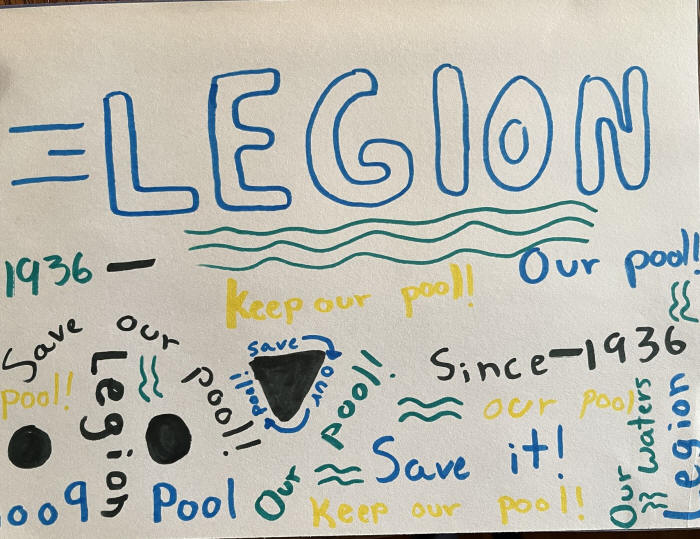 LEGION
1936 -
Our pool!
Keep our pool!
Save our pool!!
save our pool!
Since-1936
pool!!
Legion
our pool
Our pool!!
Our waters
Legion
Save it!
Pool
Keep our pool!